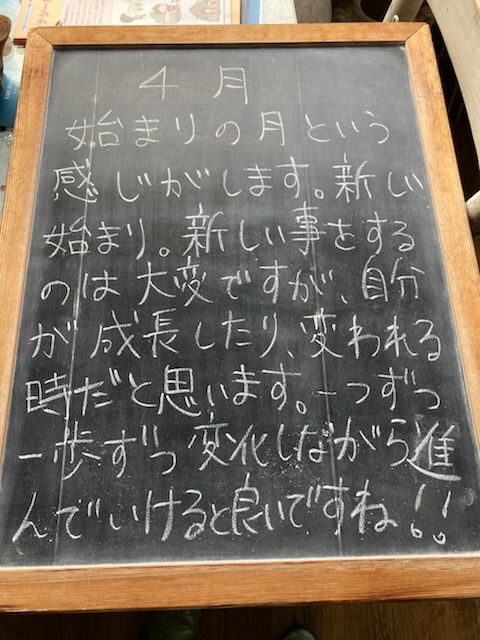 4月
始まりの月という
感じがします。新しい
始まり。新しい事をする
のは大変ですが、自分
が成長したり、変われる
時だと思います。一つずつ
一歩ずつ変化しながら進
んでいけると良いですね!!